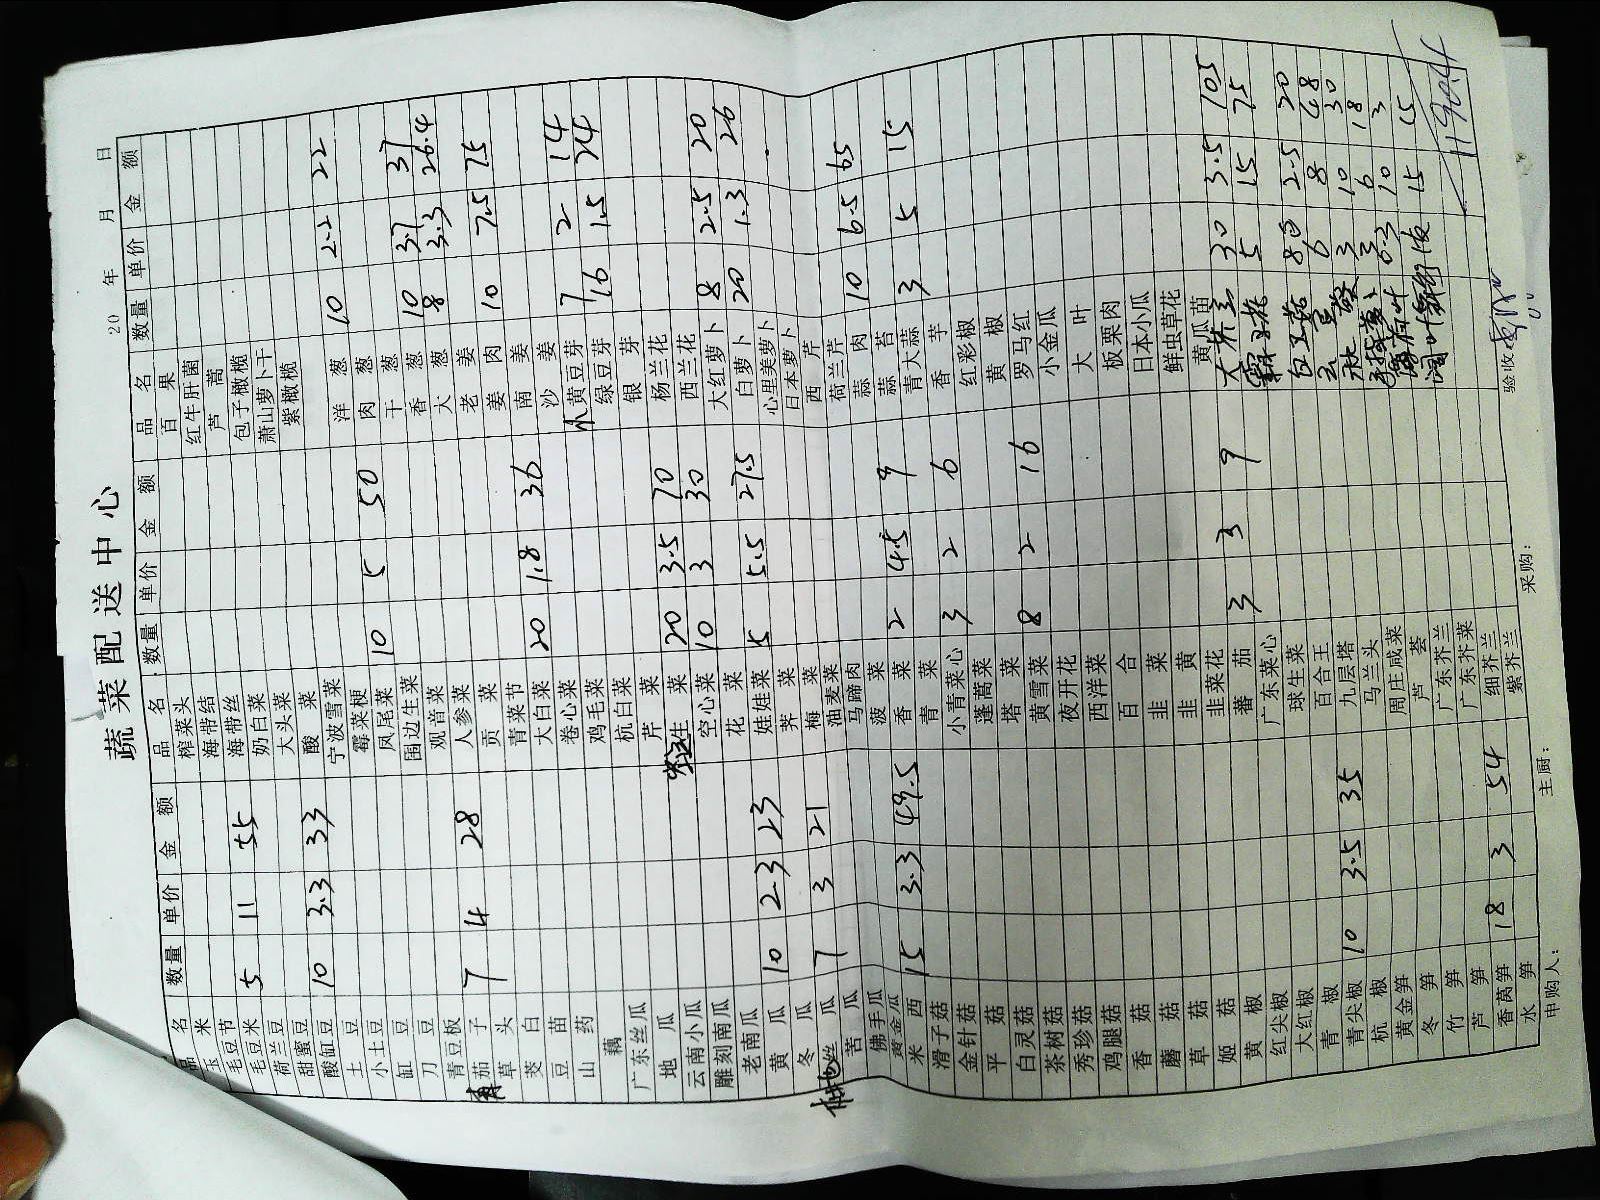 蔬菜配送中心
20 年 月 日
品名 数量 单价 金额 品名 数量 单价 金额 品名 数量 单价 金额
玉米 榨菜头 百果
毛豆节 海带结 红牛肝菌
毛豆米 5 11 55 海带丝 芦蒿
荷兰豆 奶白菜 包子橄榄
甜蜜豆 大头菜 萧山萝卜干
酸缸豆 10 3.3 33 酸菜 紫橄榄
土豆 宁波雪菜
小土豆 霉菜梗 洋葱 10 2.2 22
缸豆 凤尾菜 10 5 50 肉葱
刀豆 围边生菜 干葱
青豆板 观音菜 香葱 10 3.7 37
茄子 7 4 28 人参菜 大葱 8 3.3 26.4
草头 贡菜 老姜
茭白 青菜节 姜肉 10 7.5 75
豆苗 大白菜 20 1.8 36 南姜
山药 卷心菜 沙姜
藕 鸡毛菜 黄豆芽 7 2 14
广东丝瓜 杭白菜 绿豆芽 16 1.5 24
地瓜 芹菜 银芽
云南小瓜 生菜 20 3.5 70 杨兰花
雕刻南瓜 空心菜 10 3 30 西兰花
老南瓜 花菜 大红萝卜 8 2.5 20
黄瓜 10 2.3 23 娃娃菜 5 5.5 27.5 白萝卜 20 1.3 26
冬瓜 荠菜 心里美萝卜
丝瓜 7 3 21 梅菜 日本萝卜
苦瓜 油麦菜 西芹
佛手瓜 马蹄肉 荷兰芹
黄金瓜 菠菜 蒜肉 10 6.5 65
米西 15 3.3 49.5 香菜 2 4.5 9 蒜苔
滑子菇 青菜 青大蒜 3 5 15
金针菇 小青菜心 3 2 6 香芋
平菇 蓬蒿菜 红彩椒
白灵菇 塔菜 黄椒
茶树菇 黄雪菜 8 2 16 罗马红
秀珍菇 夜开花 小金瓜
鸡腿菇 西洋菜 大叶
香菇 百合 板栗肉
蘑菇 韭菜 日本小瓜
草菇 韭黄 鲜虫草花
姬菇 韭菜花 黄瓜苗
黄椒 蕃茄 3 3 9 30 3.5 105
红尖椒 广东菜心 5 15 75
大红椒 球生菜 白玉菇 8 2.5 20
青椒 百合王 6 8 48
青尖椒 10 3.5 35 九层塔 3 10 30
杭椒 马兰头 3 6 18
黄金笋 周庄咸菜 0.3 10 3
冬笋 芦荟 15 15
竹笋 广东芥兰
芦笋 广东芥菜 1190.4
香莴笋 18 3 54 细芥兰
水笋 紫芥兰
申购人： 主厨： 采购： 验收